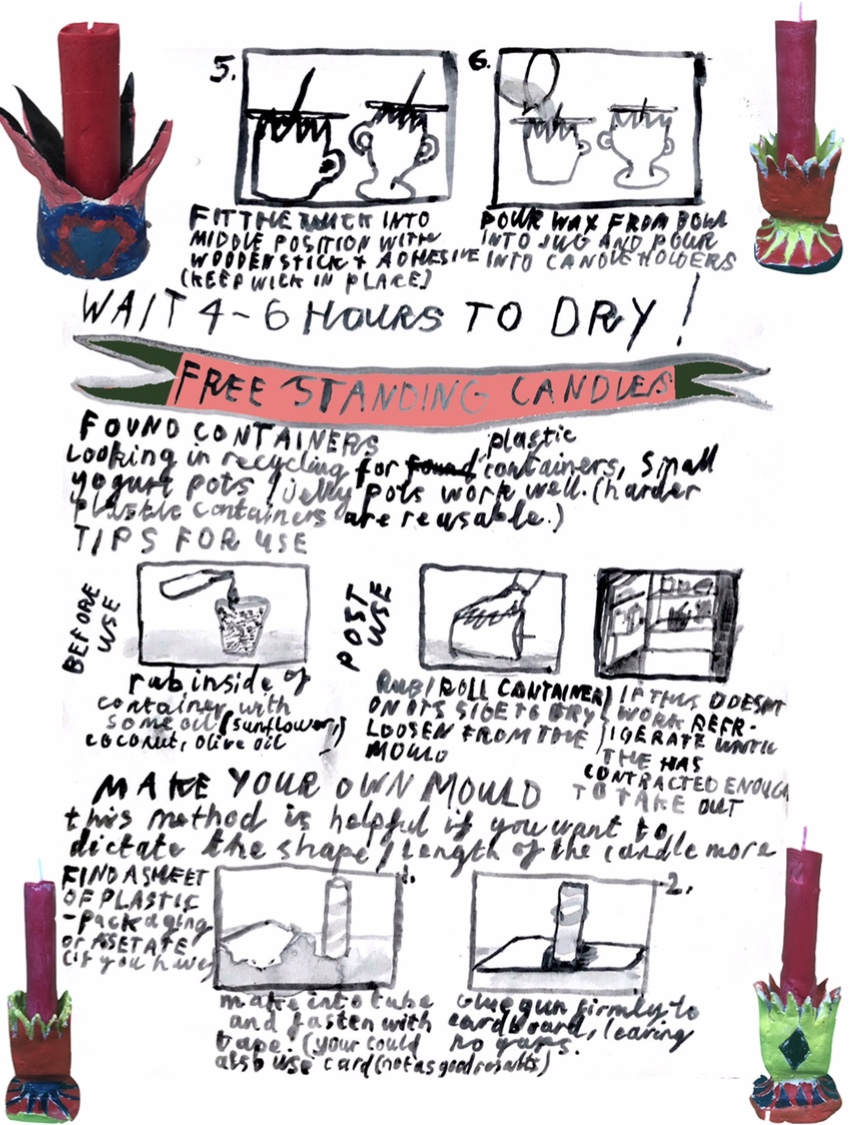 5.
FIT THE WICK INTO
MIDDLE POSITION WITH
WOODEN STICK + ADHESIVE
(KEEP WICK IN PLACE)
6.
POUR WAX FROM BOWL
INTO JUG AND POUR
INTO CANDLE HOLDERS
WAIT 4-6 HOURS TO DRY!
FREE STANDING CANDLES
FOUND CONTAINERS
Looking in recycling for found plastic containers, small
yogurt pots / jelly pots work well. (harder
plastic containers are reusable.)
TIPS FOR USE
BEFORE
USE
rub inside of
container with
some oil (sunflower,)
coconut, olive oil
POST
USE
RUB/ROLL CONTAINER
ON ITS SIDE TO TRY
LOOSEN FROM THE
MOULD
IF THIS DOESNT
WORK REFR-
IGERATE UNTIL
THE HAS
CONTRACTED ENOUGH
TO TAKE OUT
MAKE YOUR OWN MOULD
this method is helpful if you want to
dictate the shape / length of the candle more
FIND A SHEET
OF PLASTIC
-packaging
or ASETATE
(if you have)
1.
make into tube
and fasten with
tape. (your could
also use card (not as good results)
2.
Glue gun firmly to
cardboard, leaving
no gaps.